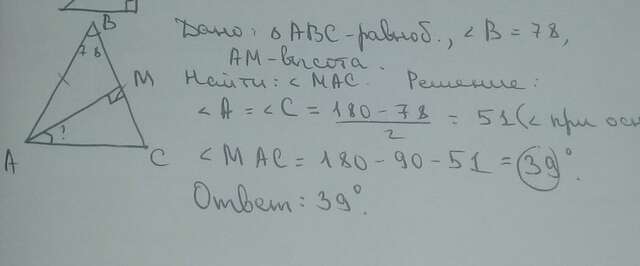 B
78
M
A
?
C
Дано: △ABC-равноб., <B = 78,
AM-высота.
Найти: <MAC. Решение:
<A = <C = 180-78/2 = 51(< при осн
<MAC = 180-90-51 = 39°.
Ответ: 39°.